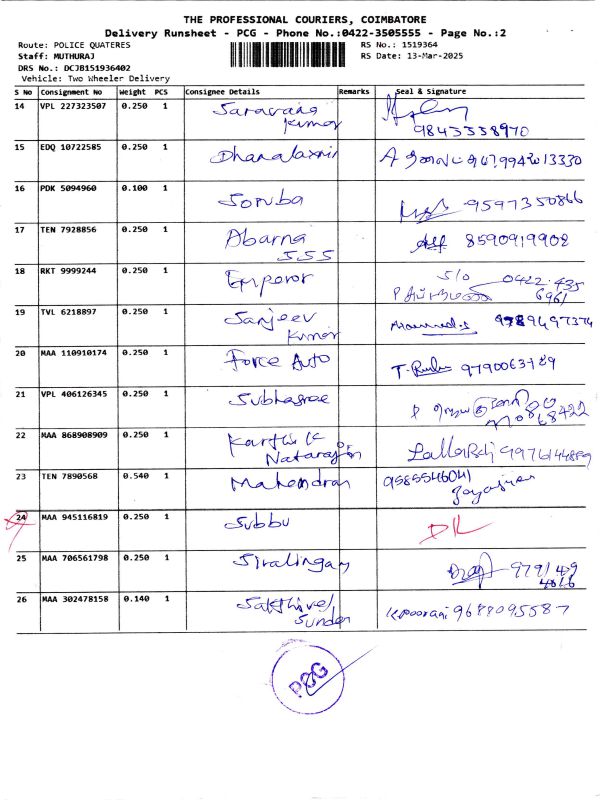 THE PROFESSIONAL COURIERS, COIMBATORE
Delivery Runsheet - PCG - Phone No.:0422-3505555 - Page No.:2
Route: POLICE QUATERES
RS No.: 1519364
Staff: MUTHURAJ
RS Date: 13-Mar-2025
DRS No.: DCJB151936402
Vehicle: Two Wheeler Delivery
S No Consignment No Weight PCS Consignee Details Remarks Seal & Signature
14 VPL 227323507 0.250 1 Saravana
Kumar 9843558970
15 EDQ 10722585 0.250 1 Dhanalaxmi
16 PDK 5094960 0.100 1 Soruba 9597350866
17 TEN 7928856 0.250 1 Abarna 8590919908
SSS
18 RKT 9999244 0.250 1 Emperor S/o 0422-435
6961
19 TVL 6218897 0.250 1 Sanjeev
Kumar
20 MAA 110910174 0.250 1 Force Auto 9790063789
21 VPL 406126345 0.250 1 Subhasree
22 MAA 868908909 0.250 1 Karthik
Natarajan
23 TEN 7890568 0.540 1 Mahendran 9585546041
24 MAA 945116819 0.250 1 Subbu D/L
25 MAA 706561798 0.250 1 Sivalingam 9791489
26 MAA 302478158 0.140 1 Sakthivel
Sundar 9688095587
PCG